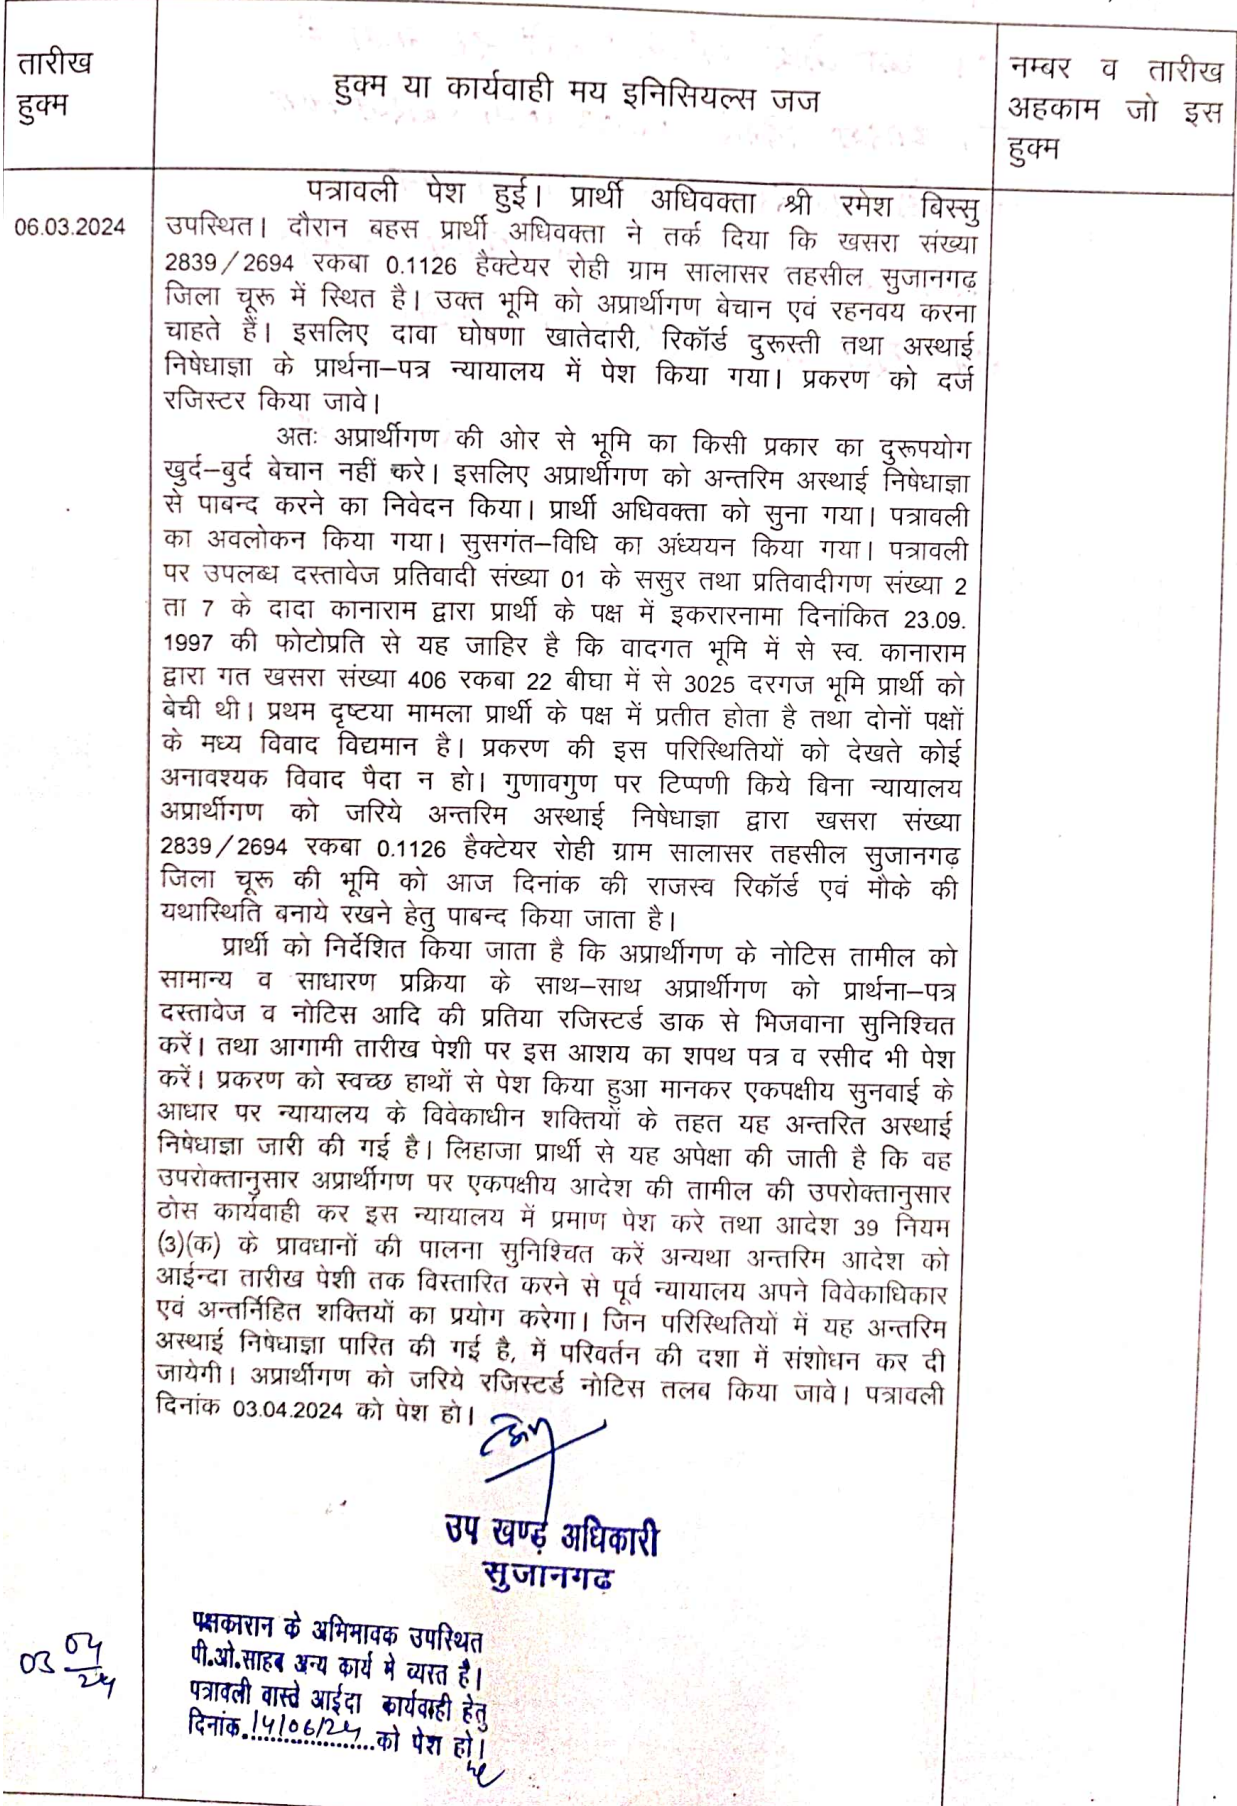 तारीख
हुक्म
हुक्म या कार्यवाही मय इनिसियल्स जज
नम्बर व तारीख
अहकाम जो इस
हुक्म
06.03.2024
पत्रावली पेश हुई। प्रार्थी अधिवक्ता श्री रमेश बिस्सु
उपस्थित। दौरान बहस प्रार्थी अधिवक्ता ने तर्क दिया कि खसरा संख्या
2839/2694 रकबा 0.1126 हैक्टेयर रोही ग्राम सालासर तहसील सुजानगढ़
जिला चूरू में स्थित है। उक्त भूमि को अप्रार्थीगण बेचान एवं रहनवय करना
चाहते हैं। इसलिए दावा घोषणा खातेदारी, रिकॉर्ड दुरूस्ती तथा अस्थाई
निषेधाज्ञा के प्रार्थना–पत्र न्यायालय में पेश किया गया। प्रकरण को दर्ज
रजिस्टर किया जावे।
अतः अप्रार्थीगण की ओर से भूमि का किसी प्रकार का दुरूपयोग
खुर्द–बुर्द बेचान नहीं करे। इसलिए अप्रार्थीगण को अन्तरिम अस्थाई निषेधाज्ञा
से पाबन्द करने का निवेदन किया। प्रार्थी अधिवक्ता को सुना गया। पत्रावली
का अवलोकन किया गया। सुसगंत–विधि का अंध्ययन किया गया। पत्रावली
पर उपलब्ध दस्तावेज प्रतिवादी संख्या 01 के ससुर तथा प्रतिवादीगण संख्या 2
ता 7 के दादा कानाराम द्वारा प्रार्थी के पक्ष में इकरारनामा दिनांकित 23.09.
1997 की फोटोप्रति से यह जाहिर है कि वादगत भूमि में से स्व. कानाराम
द्वारा गत खसरा संख्या 406 रकबा 22 बीघा में से 3025 दरगज भूमि प्रार्थी को
बेची थी। प्रथम दृष्टया मामला प्रार्थी के पक्ष में प्रतीत होता है तथा दोनों पक्षों
के मध्य विवाद विद्यमान है। प्रकरण की इस परिस्थितियों को देखते कोई
अनावश्यक विवाद पैदा न हो। गुणावगुण पर टिप्पणी किये बिना न्यायालय
अप्रार्थीगण को जरिये अन्तरिम अस्थाई निषेधाज्ञा द्वारा खसरा संख्या
2839/2694 रकबा 0.1126 हैक्टेयर रोही ग्राम सालासर तहसील सुजानगढ़
जिला चूरू की भूमि को आज दिनांक की राजस्व रिकॉर्ड एवं मौके की
यथास्थिति बनाये रखने हेतु पाबन्द किया जाता है।
प्रार्थी को निर्देशित किया जाता है कि अप्रार्थीगण के नोटिस तामील को
सामान्य व साधारण प्रक्रिया के साथ–साथ अप्रार्थीगण को प्रार्थना–पत्र
दस्तावेज व नोटिस आदि की प्रतिया रजिस्टर्ड डाक से भिजवाना सुनिश्चित
करें। तथा आगामी तारीख पेशी पर इस आशय का शपथ पत्र व रसीद भी पेश
करें। प्रकरण को स्वच्छ हाथों से पेश किया हुआ मानकर एकपक्षीय सुनवाई के
आधार पर न्यायालय के विवेकाधीन शक्तियों के तहत यह अन्तरित अस्थाई
निषेधाज्ञा जारी की गई है। लिहाजा प्रार्थी से यह अपेक्षा की जाती है कि वह
उपरोक्तानुसार अप्रार्थीगण पर एकपक्षीय आदेश की तामील की उपरोक्तानुसार
ठोस कार्यवाही कर इस न्यायालय में प्रमाण पेश करे तथा आदेश 39 नियम
(3)(क) के प्रावधानों की पालना सुनिश्चित करें अन्यथा अन्तरिम आदेश को
आईन्दा तारीख पेशी तक विस्तारित करने से पूर्व न्यायालय अपने विवेकाधिकार
एवं अन्तर्निहित शक्तियों का प्रयोग करेगा। जिन परिस्थितियों में यह अन्तरिम
अस्थाई निषेधाज्ञा पारित की गई है, में परिवर्तन की दशा में संशोधन कर दी
जायेगी। अप्रार्थीगण को जरिये रजिस्टर्ड नोटिस तलब किया जावे। पत्रावली
दिनांक 03.04.2024 को पेश हो।
उप खण्ड अधिकारी
सुजानगढ
03 04/24
पक्षकारान के अभिभावक उपस्थित
पी.ओ.साहब अन्य कार्य मे व्यस्त है।
पत्रावली वास्ते आईदा कार्यवाही हेतु
दिनांक 14/06/24 को पेश हो।